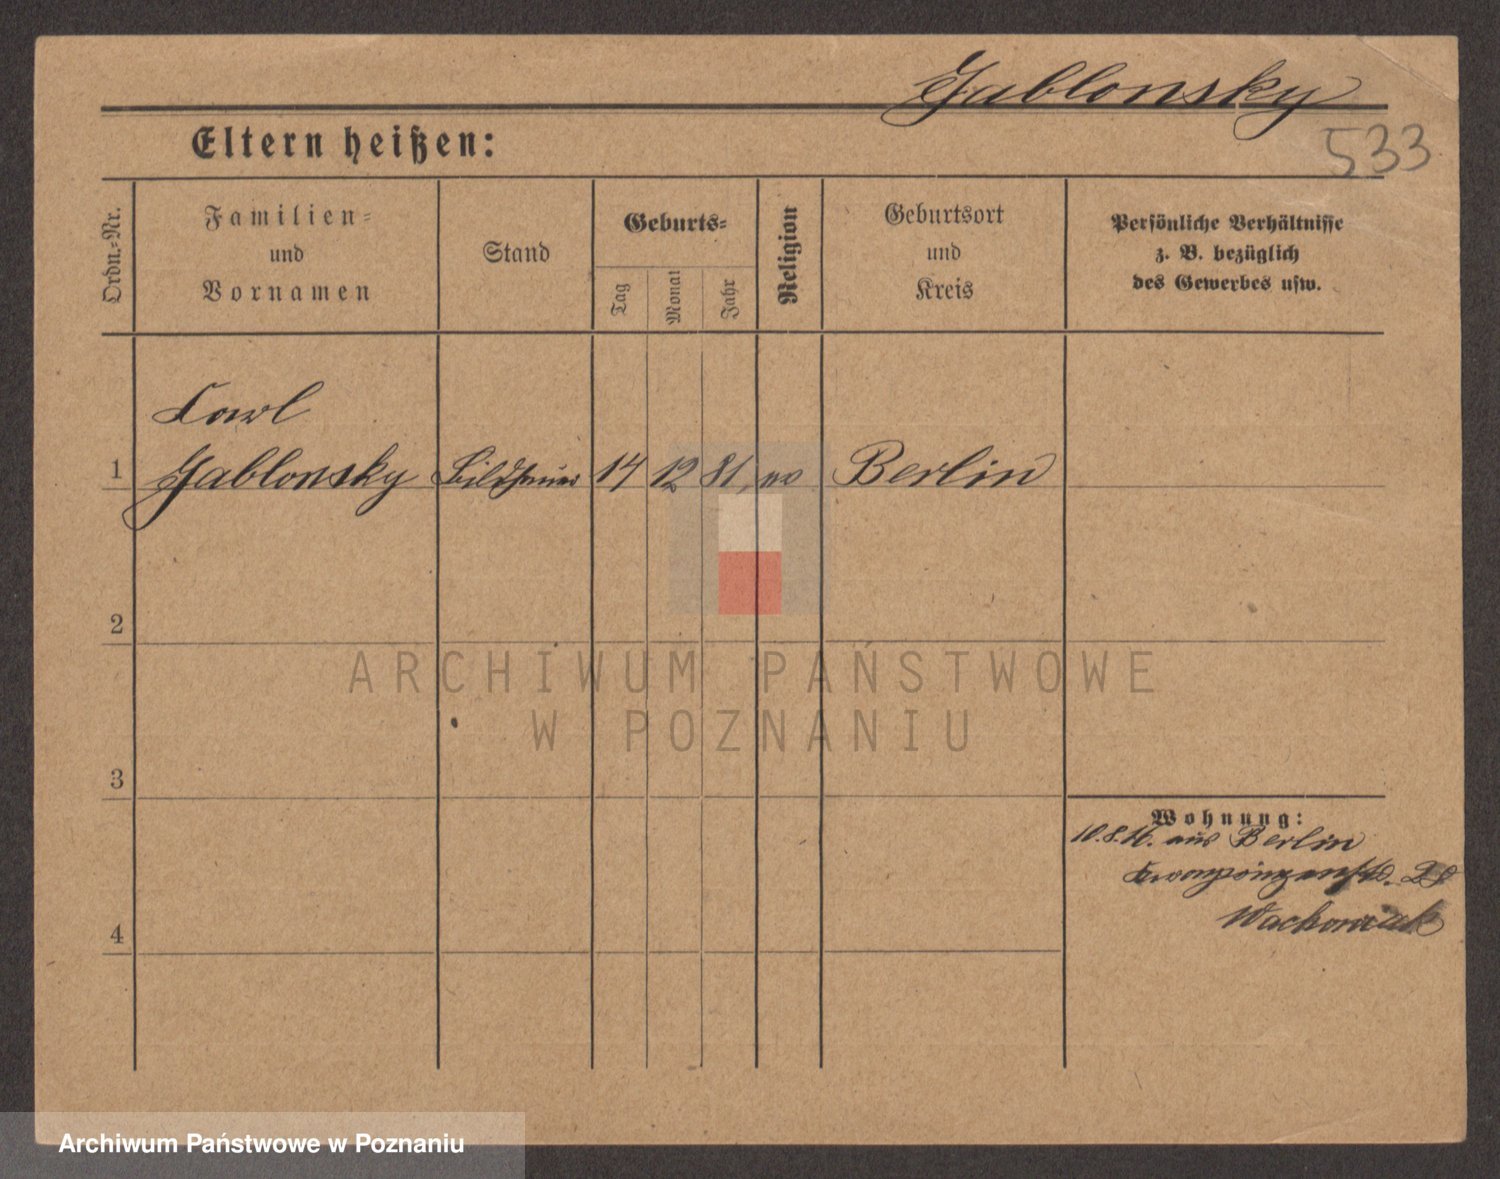 Jablonsky
533
Eltern heißen:
Ordn.-Nr.
Familien-
und
Vornamen
Stand
Geburts-
Tag
Monat
Jahr
Religion
Geburtsort
und
Kreis
Persönliche Verhältnisse
z. B. bezüglich
des Gewerbes usw.
Carl
1 Jablonsky Bildhauer 14 12 81, Berlin
2
3
4
Wohnung:
10.8.16. aus Berlin
Wachowiak
ARCHIWUM PAŃSTWOWE
W POZNANIU
Archiwum Państwowe w Poznaniu